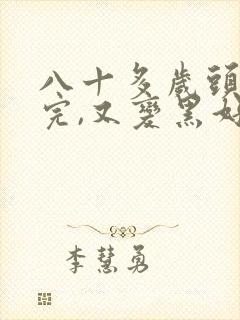 八十多歲頭
完,又變黑好
李慧勇